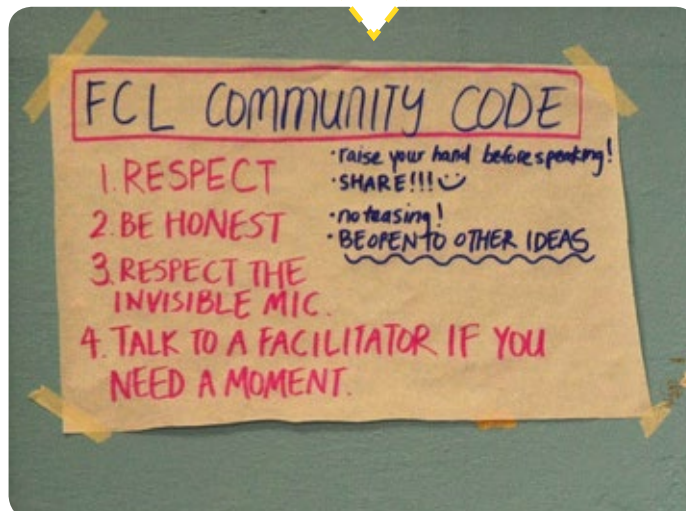 FCL COMMUNITY CODE
1. RESPECT
2. BE HONEST
3. RESPECT THE
INVISIBLE MIC.
4. TALK TO A FACILITATOR IF YOU
NEED A MOMENT.
· raise your hand before speaking!
· SHARE!!!
· no teasing!
· BE OPEN TO OTHER IDEAS